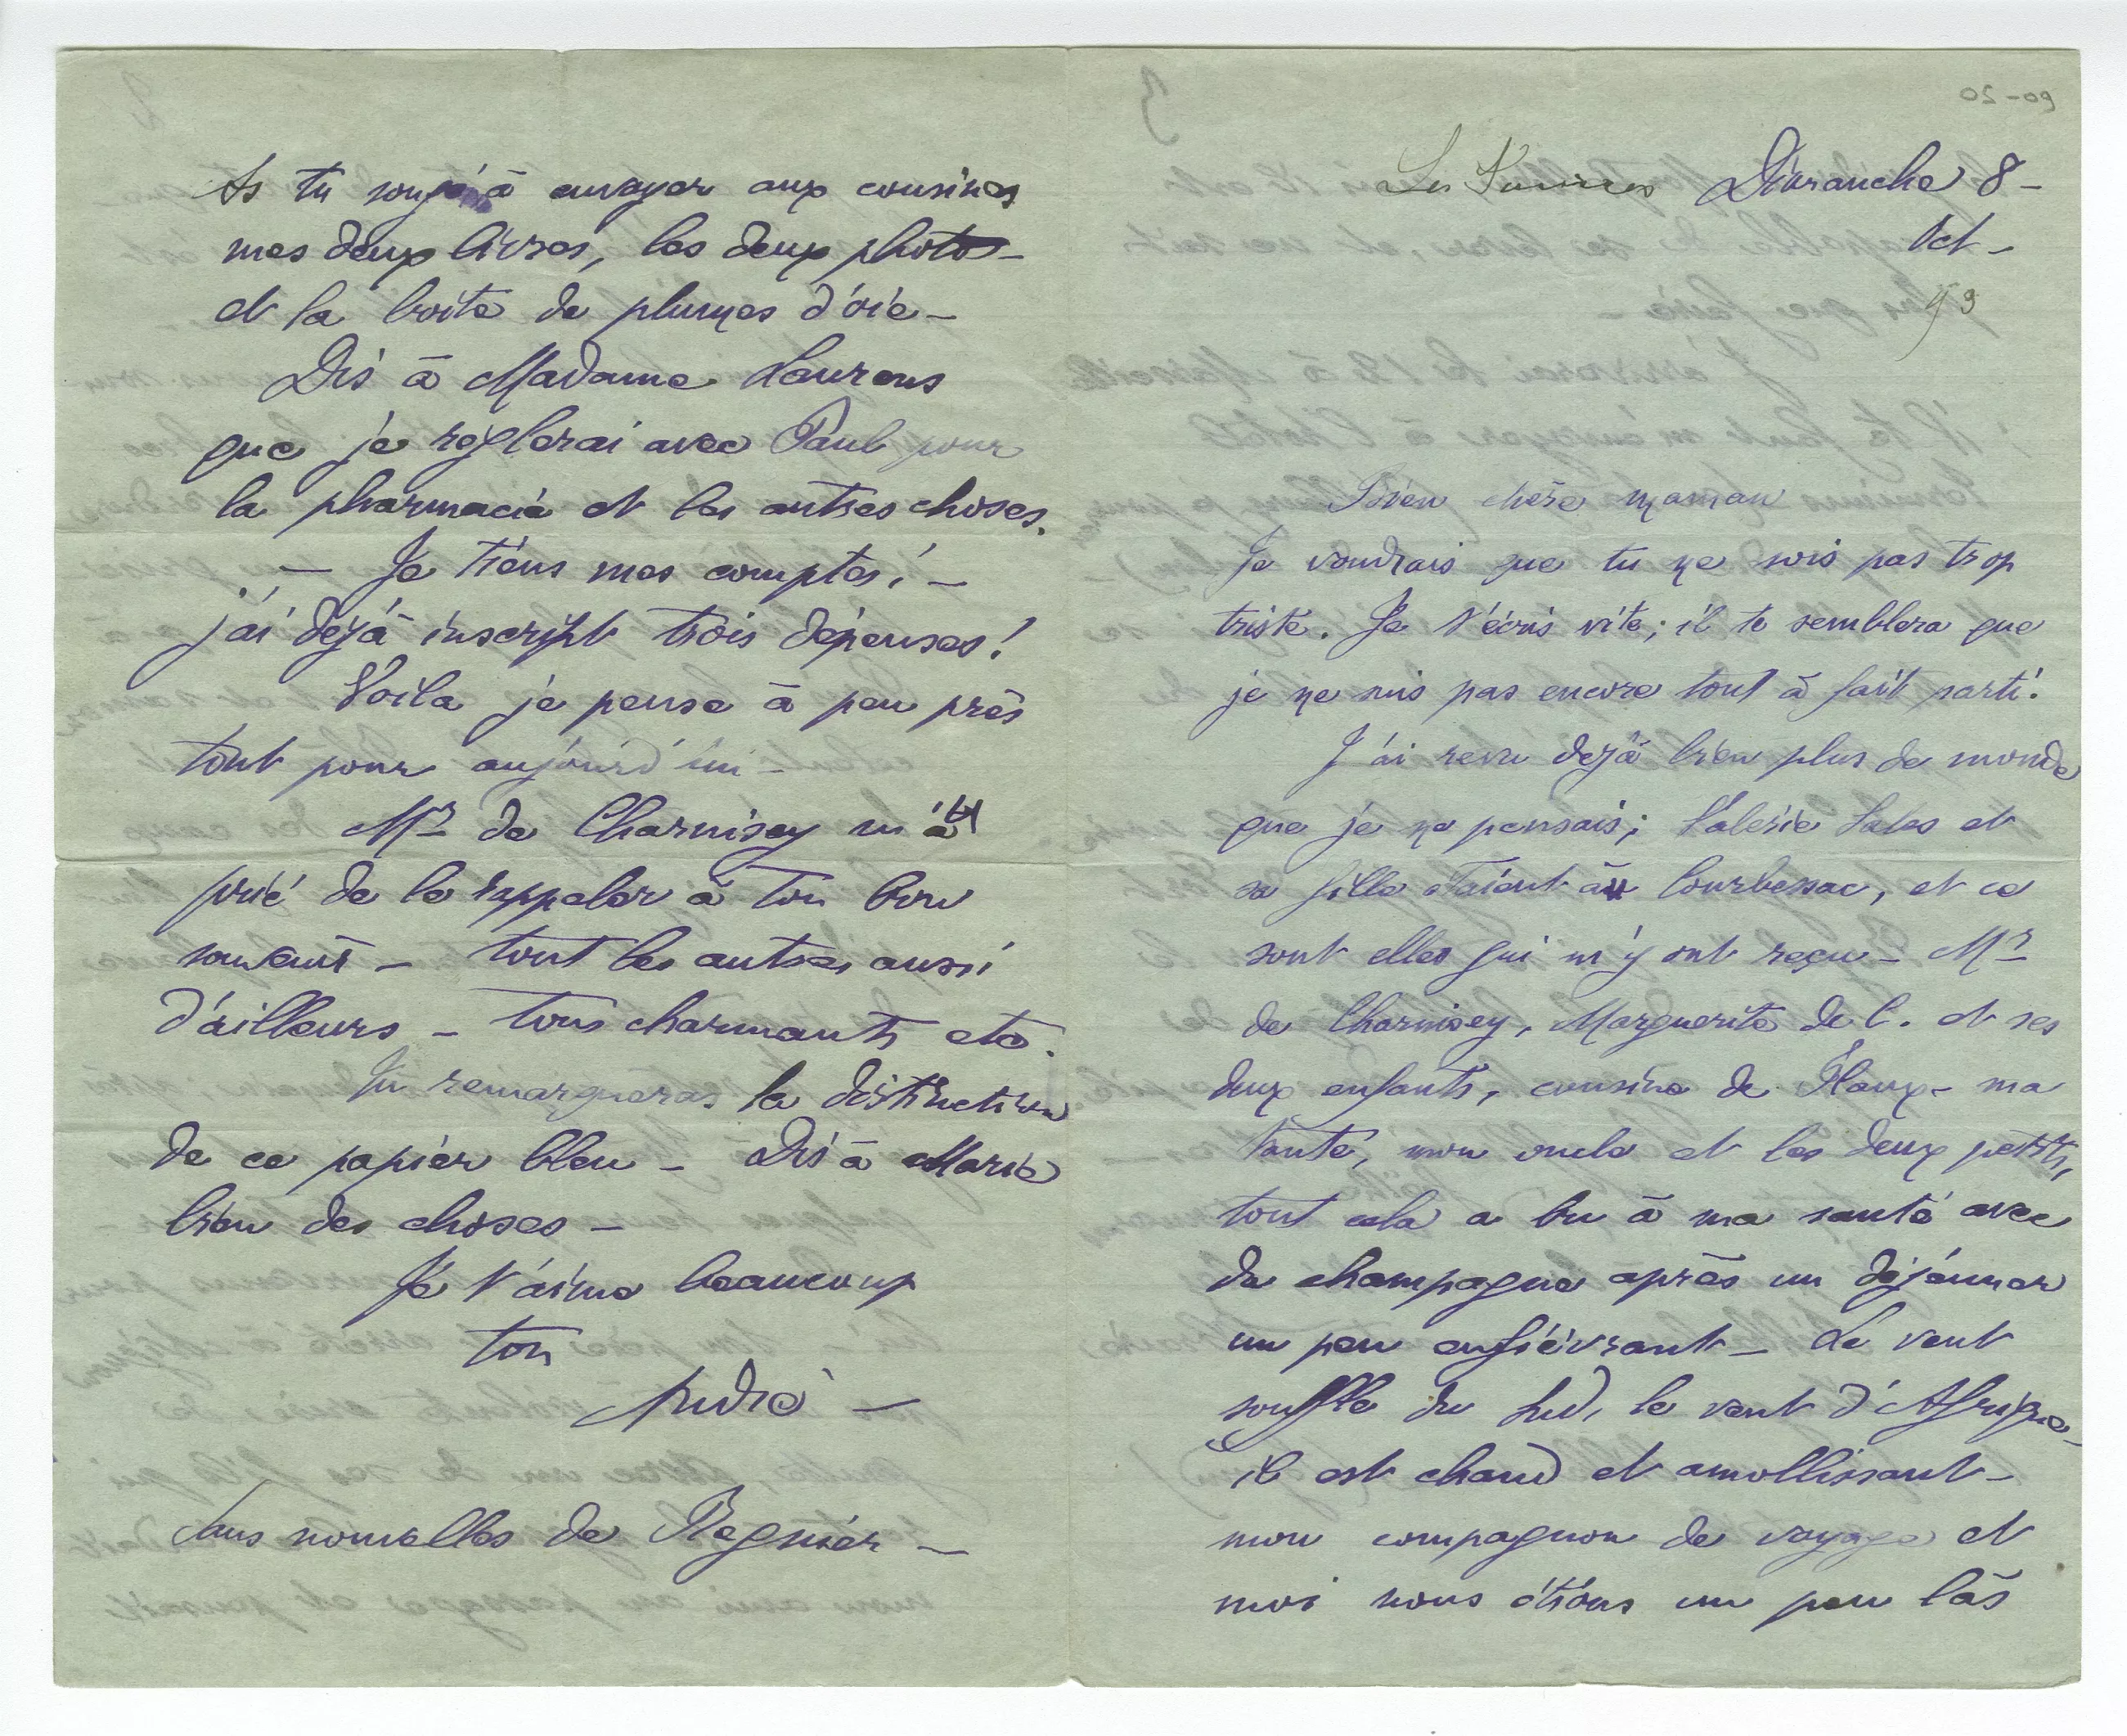 Les Sources Dimanche 8 -
Oct -
93
Bien chère maman
Je voudrais que tu ne sois pas trop
triste. Je t'écris vite; il te semblera que
je ne suis pas encore tout à fait parti.
J'ai revu dejà bien plus de monde
que je ne pensais; Valérie Sales et
sa fille étaient à Courbessac, et ce
sont elles qui m'y ont reçu - Mr
de Charnisey, Marguerite de C. et ses
deux enfants, cousine de Flaux - ma
tante, mon oncle et les deux petits,
tout cela a bu à ma santé avec
du champagne après un déjeuner
un peu enfiévrant - Le vent
souffle du Sud, le vent d'Afrique -
il est chaud et amollissant -
mon compagnon de voyage et
moi nous étions un peu las
As tu songé à envoyer aux cousines
mes deux livres, les deux photos -
et la boite de plumes d'oie -
Dis à Madame Laurens
que je reglerai avec Paul pour
la pharmacie et les autres choses.
- Je tiens mes comptes! -
j'ai déjà inscript trois dépenses!
Voila je pense à peu près
tout pour aujourd'hui -
Mr de Charnisey m'a
prié de le rappeler à ton bon
souvenir - tout les autres aussi
d'ailleurs - tous charmants etc.
Tu remarqueras la distinction
de ce papier bleu - Dis à Marie
bien des choses -
Je t'aime beaucoup
ton
André -
Sans nouvelles de Regnier -